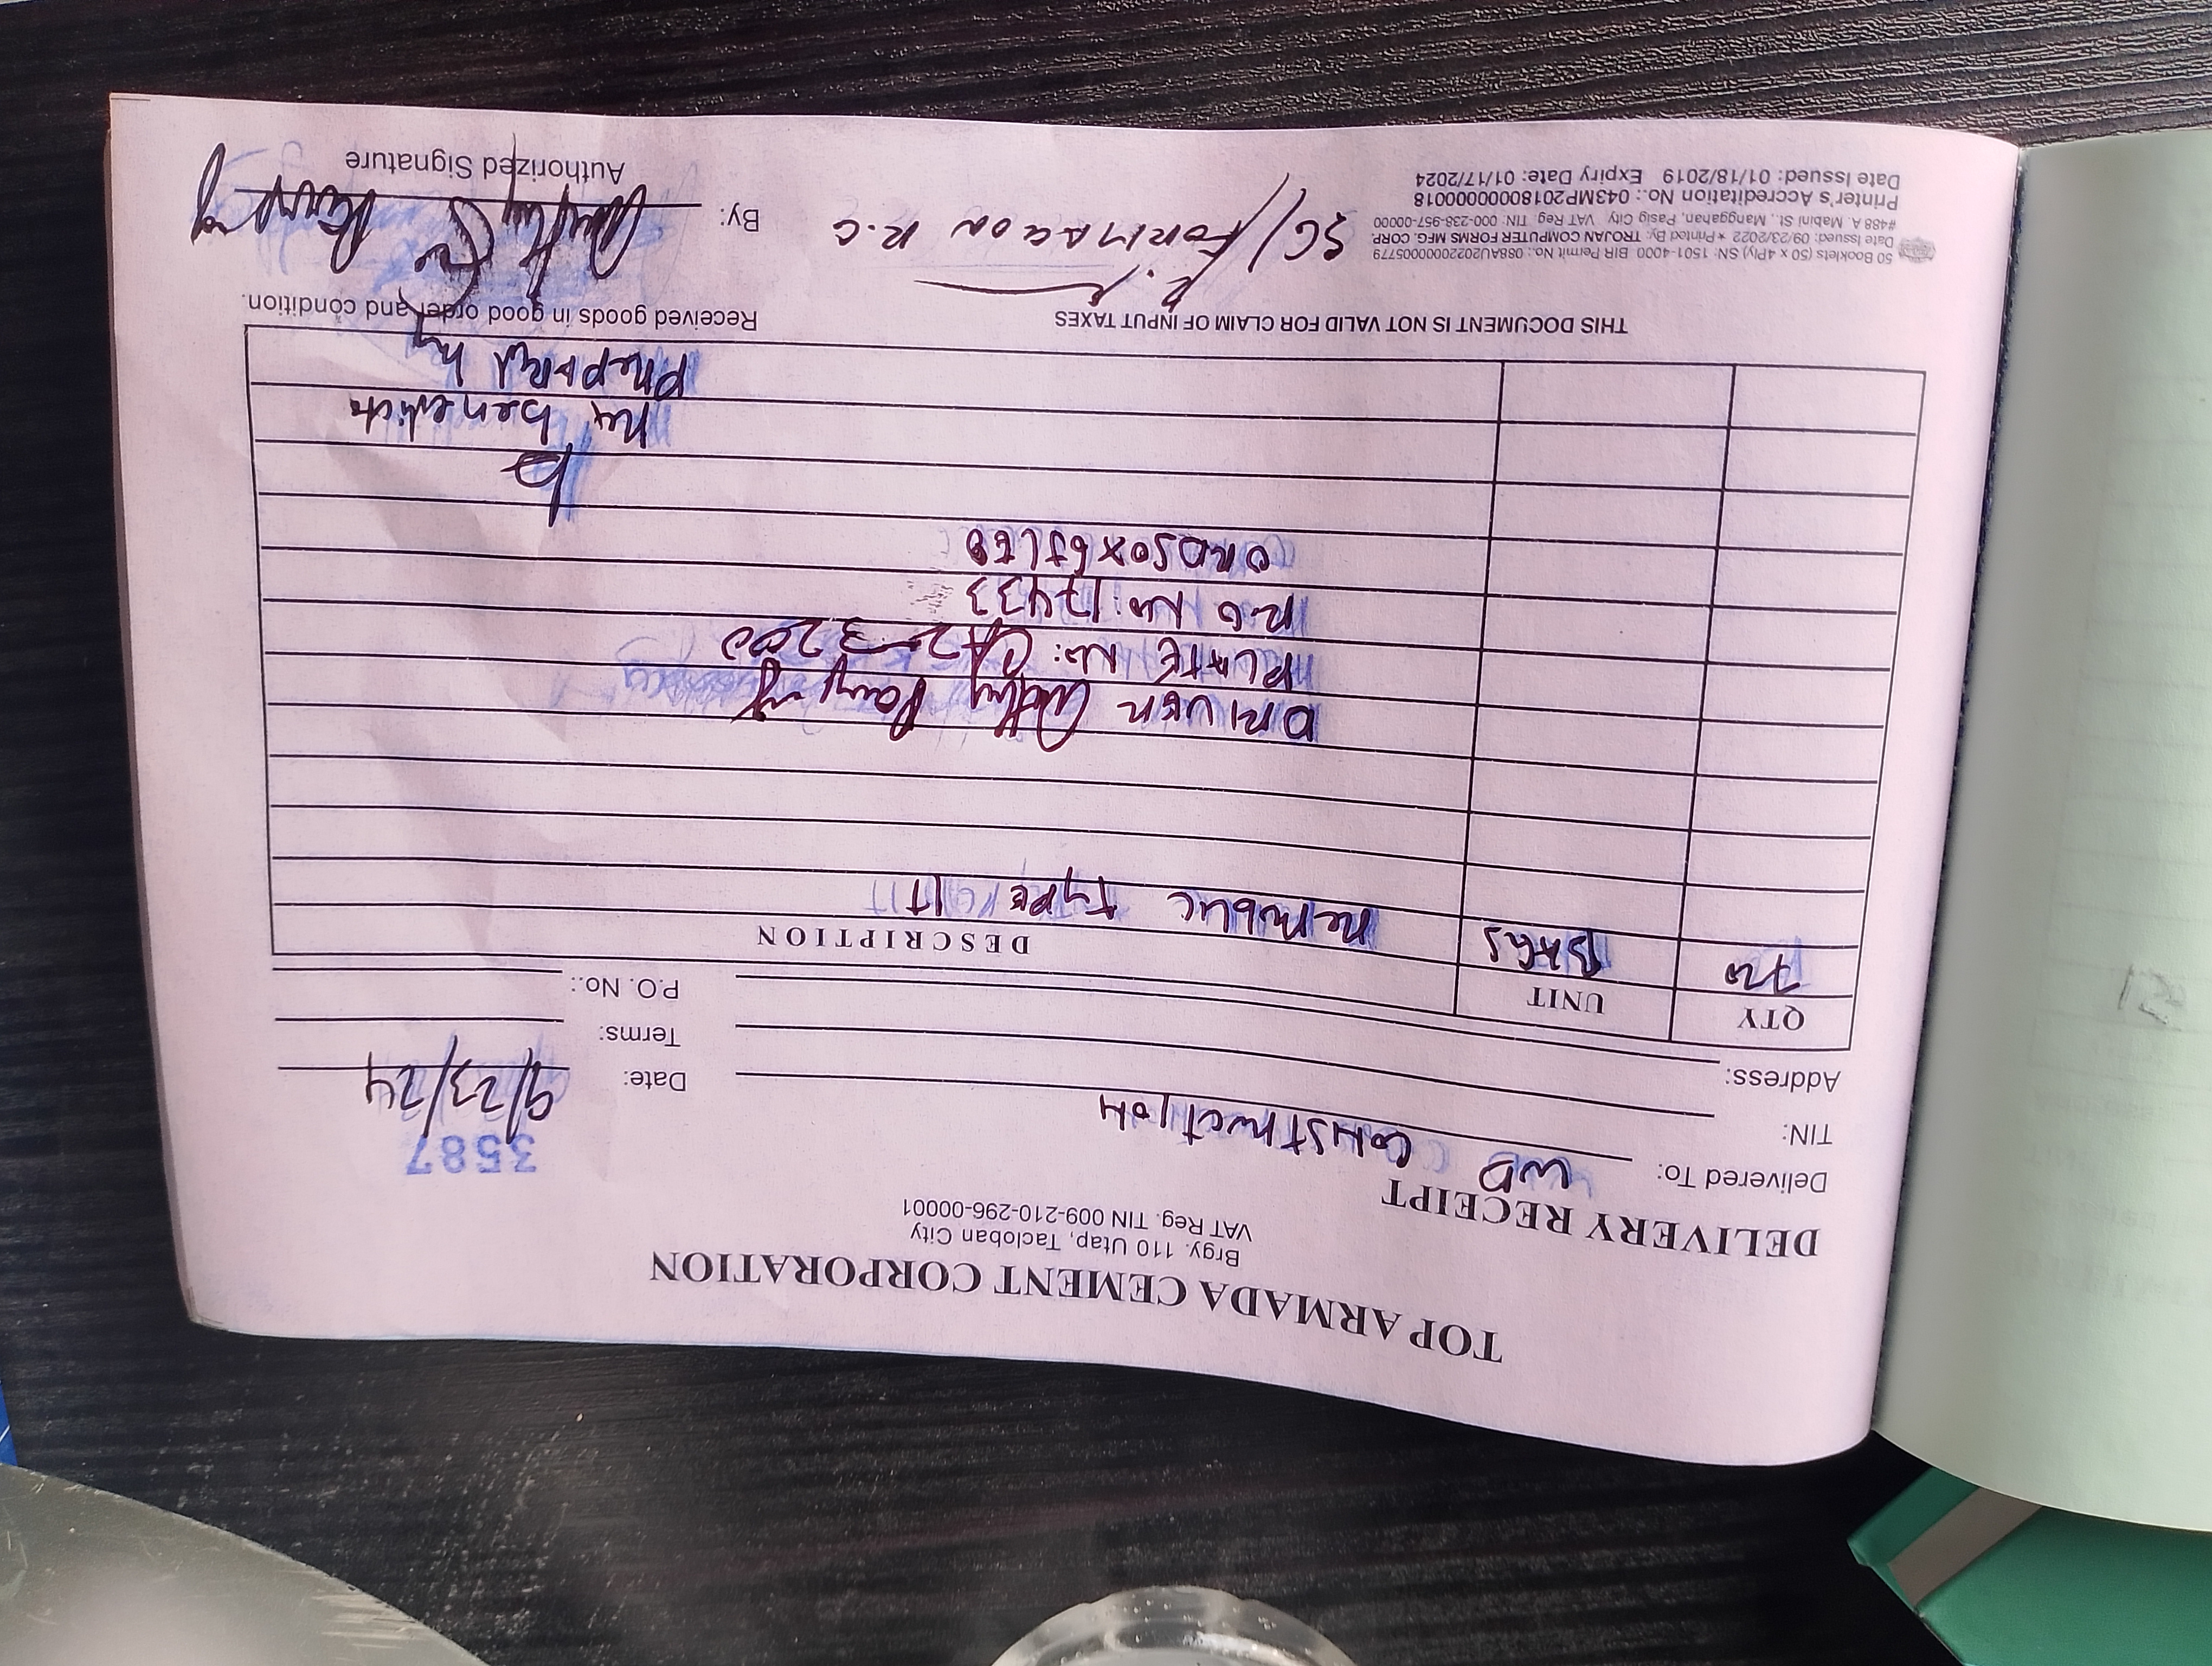 TOP ARMADA CEMENT CORPORATION
Brgy. 110 Utap, Tacloban City
VAT Reg. TIN 009-210-296-00001
DELIVERY RECEIPT
3587
Delivered To: WD Construction
Date: 9/23/24
TIN:
Terms:
Address:
P.O. No.:
QTY UNIT DESCRIPTION
720 BAGS Republic Type 1T
DRIVER
PLATE No: CA2-3200
R.O No: 17433
Prepared by
THIS DOCUMENT IS NOT VALID FOR CLAIM OF INPUT TAXES
Received goods in good order and condition.
50 Booklets (50 x 4Ply) SN: 1501-4000 BIR Permit No.: 088AU20220000005779
Date Issued: 09/23/2022 * Printed By: TROJAN COMPUTER FORMS MFG. CORP.
#488 A. Mabini St., Manggahan, Pasig City VAT Reg. TIN: 000-238-957-00000
Printer's Accreditation No.: 043MP20180000000018
Date Issued: 01/18/2019 Expiry Date: 01/17/2024
SG/FORMACON R.C
By:
Authorized Signature